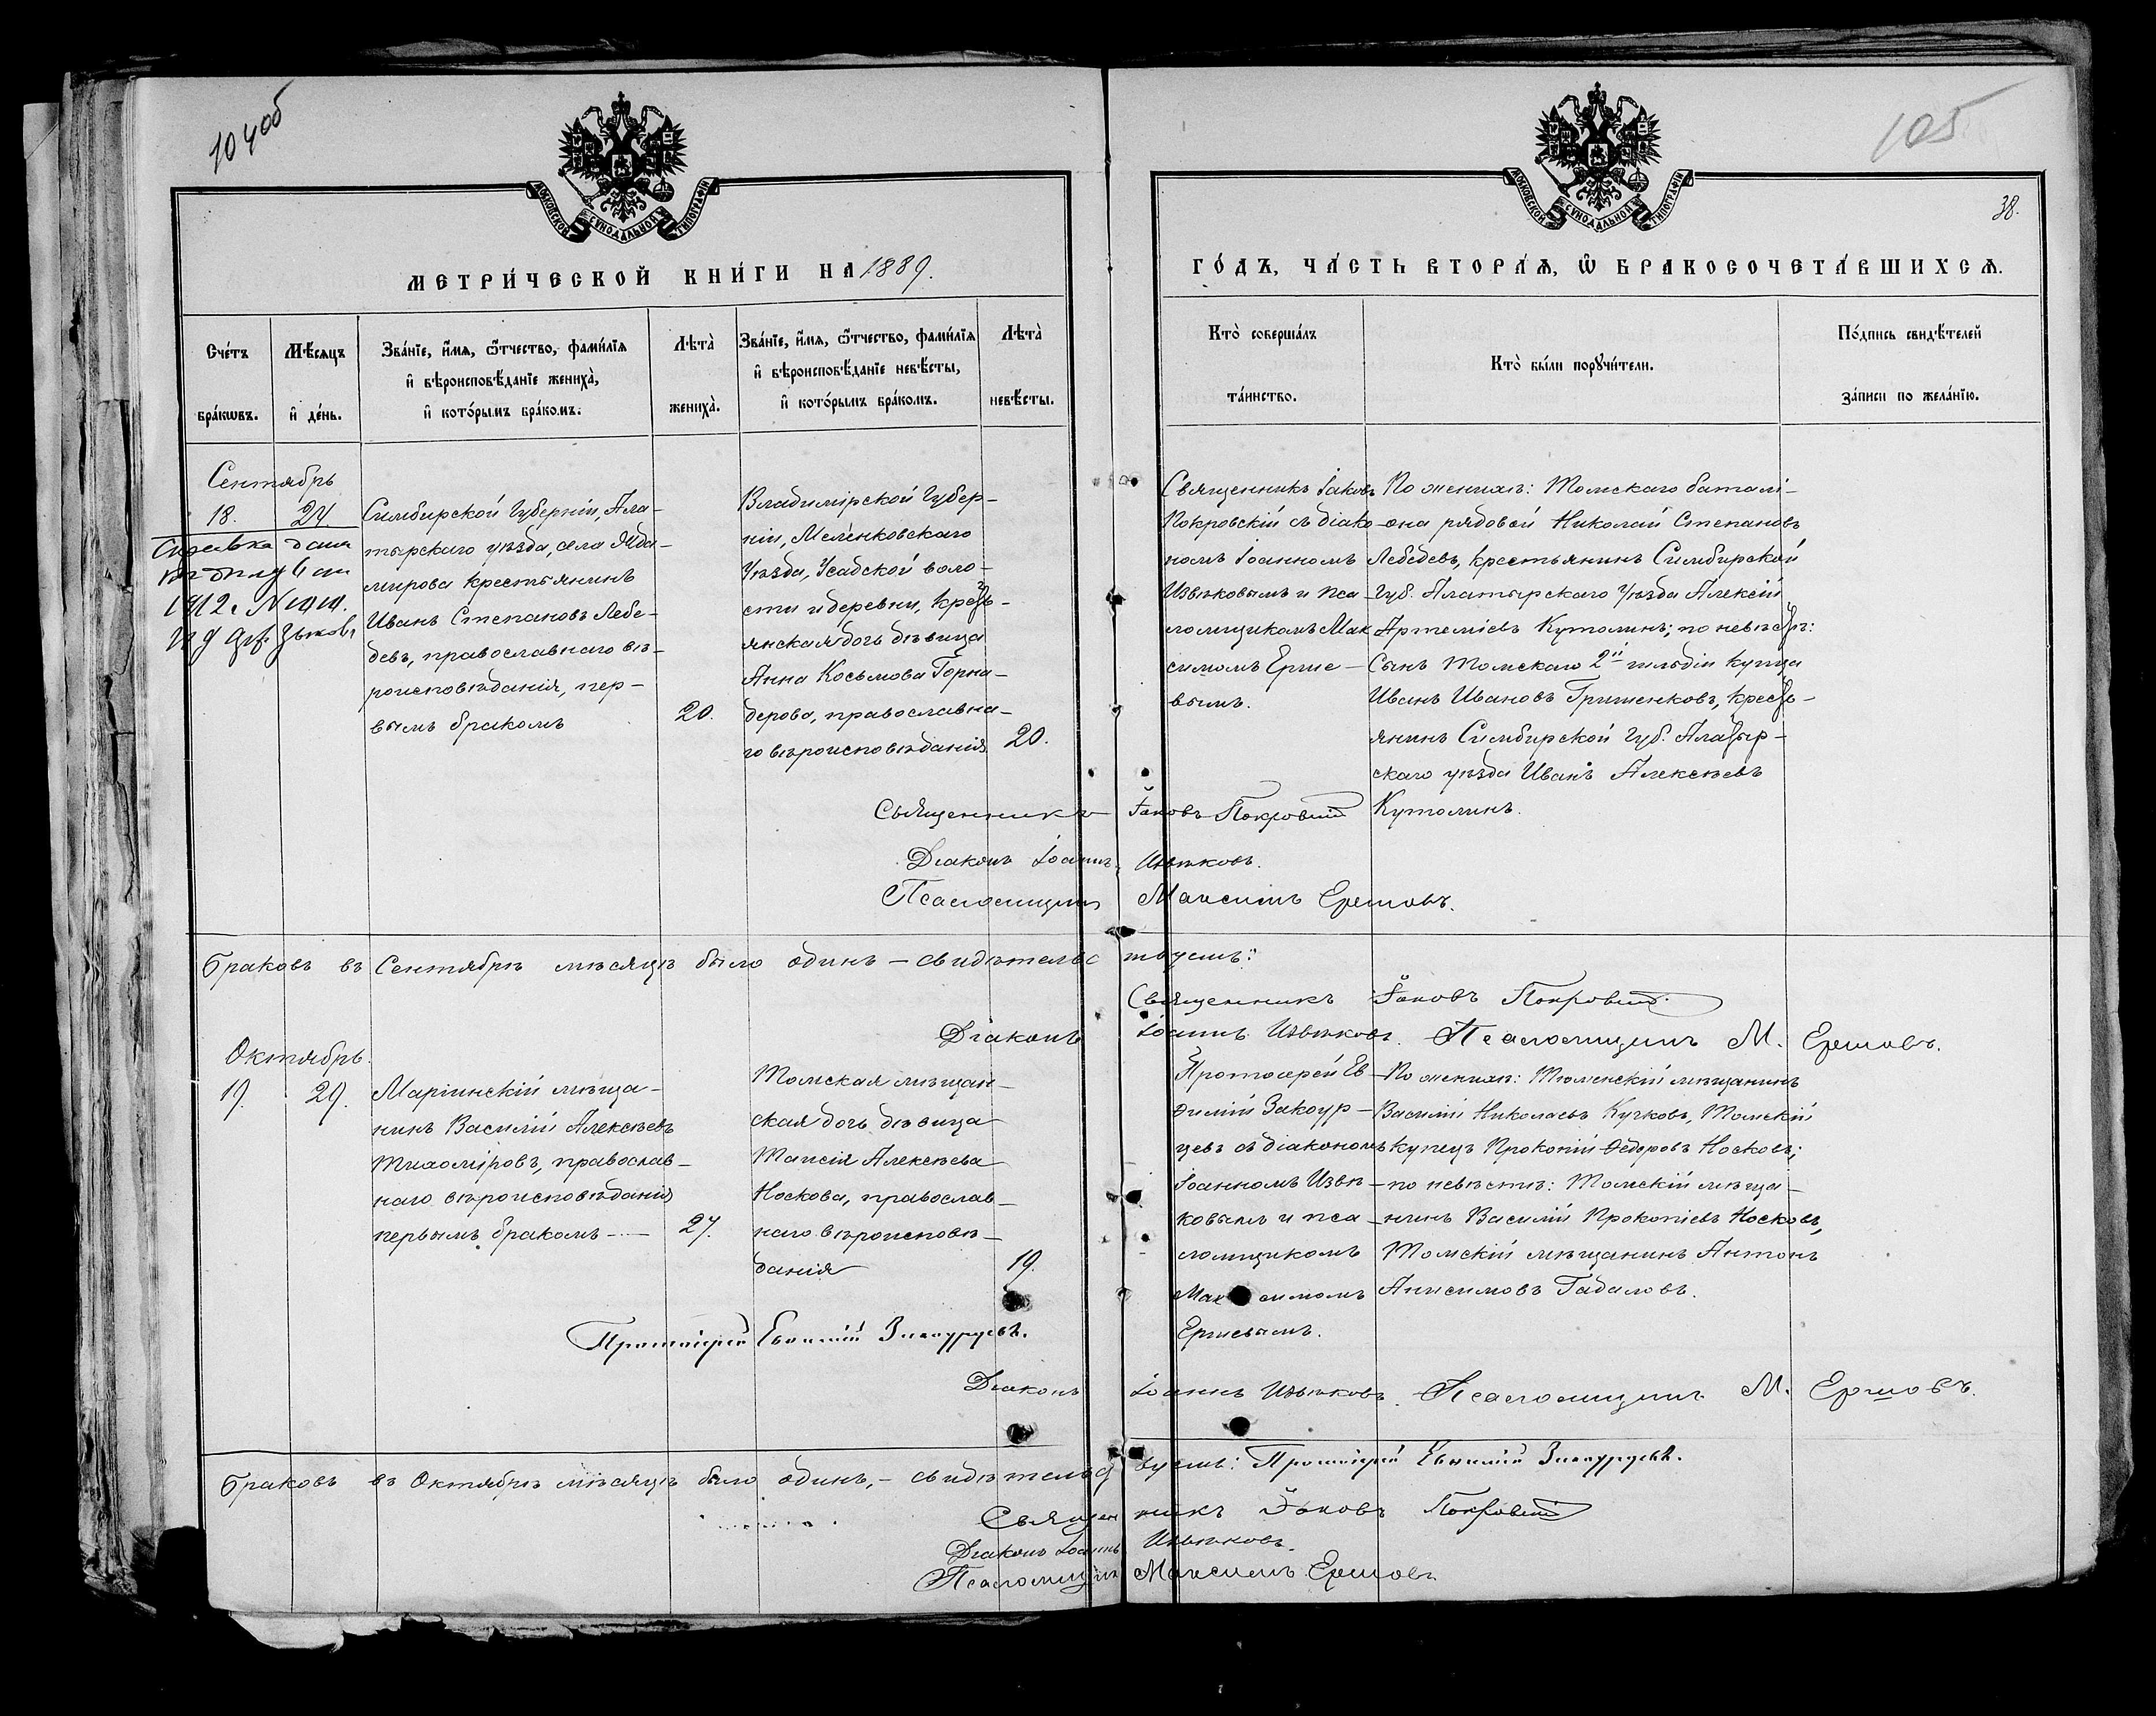 104об
105
38.
МОСКОВСКОЙ СѴНОДАЛЬНОЙ ТИПОГРАФІИ
МОСКОВСКОЙ СѴНОДАЛЬНОЙ ТИПОГРАФІИ
МЕТРИ́ЧЕСКОЙ КНИ́ГИ НА 1889.
ГО́ДЪ, ЧА́СТЬ ВТОРА́Ѧ, Ѡ҆ БРАКОСОЧЕТА́ВШИХСѦ.
Сче́тъ
бра́кѡвъ.
Мѣ́сѧцъ
и҆ де́нь.
Зва́нїе, и҆́мѧ, ѻ҆́тчество, фами́лїѧ
и҆ вѣроисповѣ́данїе жениха̀,
и҆ кото́рымъ бра́комъ.
Лѣта̀
жениха̀.
Зва́нїе, и҆́мѧ, ѻ҆́тчество, фами́лїѧ
и҆ вѣроисповѣ́данїе невѣ́сты,
и҆ кото́рымъ бра́комъ.
Лѣта̀
невѣ́сты.
Кто̀ соверша́лъ
та́инство.
Кто̀ бы́ли порꙋчи́тели.
По́дпись свидѣ́телей
за́писи по жела́нїю.
Сентябрь
18.
24.
Справка дана
1912 г.
Симбирской Губерніи, Ала-
тырскаго уѣзда, села Явда-
мирова крестьянинъ
Иванъ Степановъ Лебе-
девъ, православнаго вѣ-
роисповѣданія, пер-
вымъ бракомъ
20.
Владимірской Губер-
ніи, Меленковскаго
Уѣзда, Усадской воло-
сти и деревни, кресть-
янская дочь дѣвица
Анна Косьмова Горна-
дерова, православна-
го вѣроисповѣданія
20.
Священникъ Іаковъ
Покровскій съ діако-
номъ Іоанномъ
Извѣковымъ и пса-
ломщикомъ Мак
симомъ Ерше-
вымъ.
По женихѣ: Томскаго баталі-
она рядовой Николай Степановъ
Лебедевъ, крестьянинъ Симбирской
Губ. Алатырскаго Уѣзда Алексій
Артеміевъ Кутолинъ; по невѣстѣ:
Сынъ Томскаго 2й гильдіи купца
Иванъ Ивановъ Гришенковъ, кресть-
янинъ Симбирской Губ. Алатыр-
скаго уѣзда Иванъ Алексѣевъ
Кутолинъ.
Священникъ Іаковъ Покровскій
Діаконъ Іоаннъ Извѣковъ.
Псаломщикъ Максимъ Ершовъ.
Браковъ въ Сентябрѣ мѣсяцѣ было одинъ - свидѣтельствуемъ:
Священникъ Іаковъ Покровскій
Діаконъ Іоаннъ Извѣковъ. Псаломщикъ М. Ершовъ.
Октябрь.
19.
29.
Маріинскій мѣща-
нинъ Василій Алексѣевъ
Тихоміровъ, православ-
наго вѣроисповѣданія
первымъ бракомъ
27.
Томская мѣщан-
ская дочь дѣвица
Таисія Алексѣева
Носкова, православ-
наго вѣроисповѣ-
данія
19.
Протоіерей Ев-
фимій Закоур-
цевъ съ діакономъ
Іоанномъ Извѣ-
ковымъ и пса-
ломщикомъ
Максимомъ
Ершевымъ.
По женихѣ: Тюменскій мѣщанинъ
Василій Николаевъ Кучковъ, Томскій
купецъ Прокопій Ѳедоровъ Носковъ;
по невѣстѣ: Томскій мѣща-
нинъ Василій Прокопіевъ Носковъ,
Томскій мѣщанинъ Антонъ
Анисимовъ Гадаловъ.
Протоіерей Евѳимій Закоурцевъ.
Діаконъ Іоаннъ Извѣковъ. Псаломщикъ М. Ершовъ.
Браковъ въ Октябрѣ мѣсяцѣ было одинъ, - свидѣтельствуемъ: Протоіерей Евѳимій Закоурцевъ.
Священникъ Іаковъ Покровскій
Діаконъ Іоаннъ Извѣковъ.
Псаломщикъ Максимъ Ершовъ